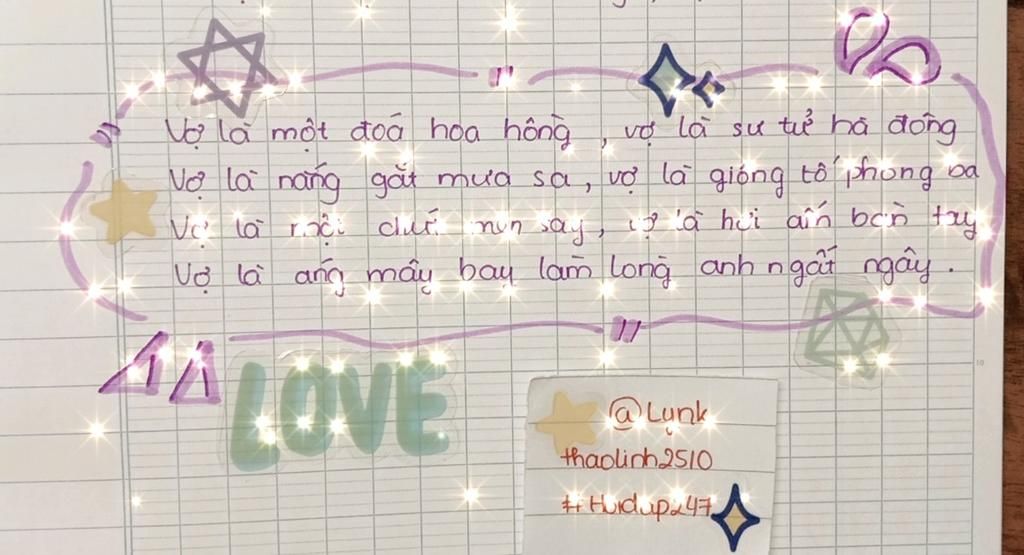 Vợ là một đoá hoa hồng, vợ là sư tử hà đông
Vợ là nắng gắt mưa sa, vợ là giông tố phong ba
Vợ là rượi dưới men say, vợ là hơi ấm bàn tay
Vợ là áng mây bay làm lòng anh ngất ngây.
LOVE
@Lynk
thaolinh2510